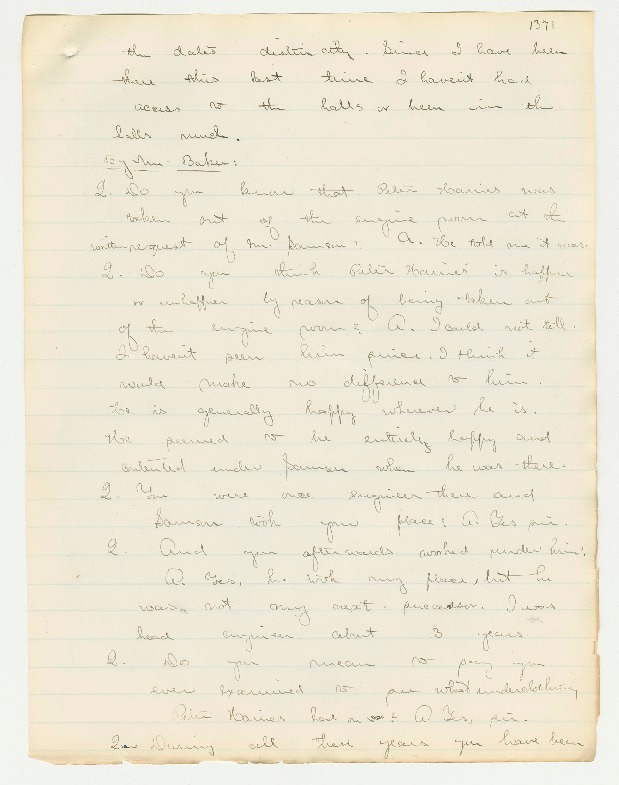 1371
the dates distinctly. Since I have been
there this last time I haven't had
access to the halls or been in the
halls much.
By Mr. Baker:
Q. Do you know that Peter Haines was
taken out of the engine room at the
written request of Mr. Samson? A. He told me it was.
Q. Do you think Peter Haines is happier
or unhappier by reason of being taken out
of the engine room? A. I could not tell.
I haven't seen him since. I think it
would make no difference to him.
He is generally happy wherever he is.
He seemed to be entirely happy and
contented under Samson when he was there.
Q. You were once engineer there and
Samson took your place? A. Yes sir.
Q. And you afterwards worked under him?
A. Yes, he took my place, but he
was not my next successor. I was
head engineer about 3 years.
Q. Do you mean to say you
ever examined to see what underclothing
Peter Haines had on? A. Yes, sir.
Q. During all these years you have been